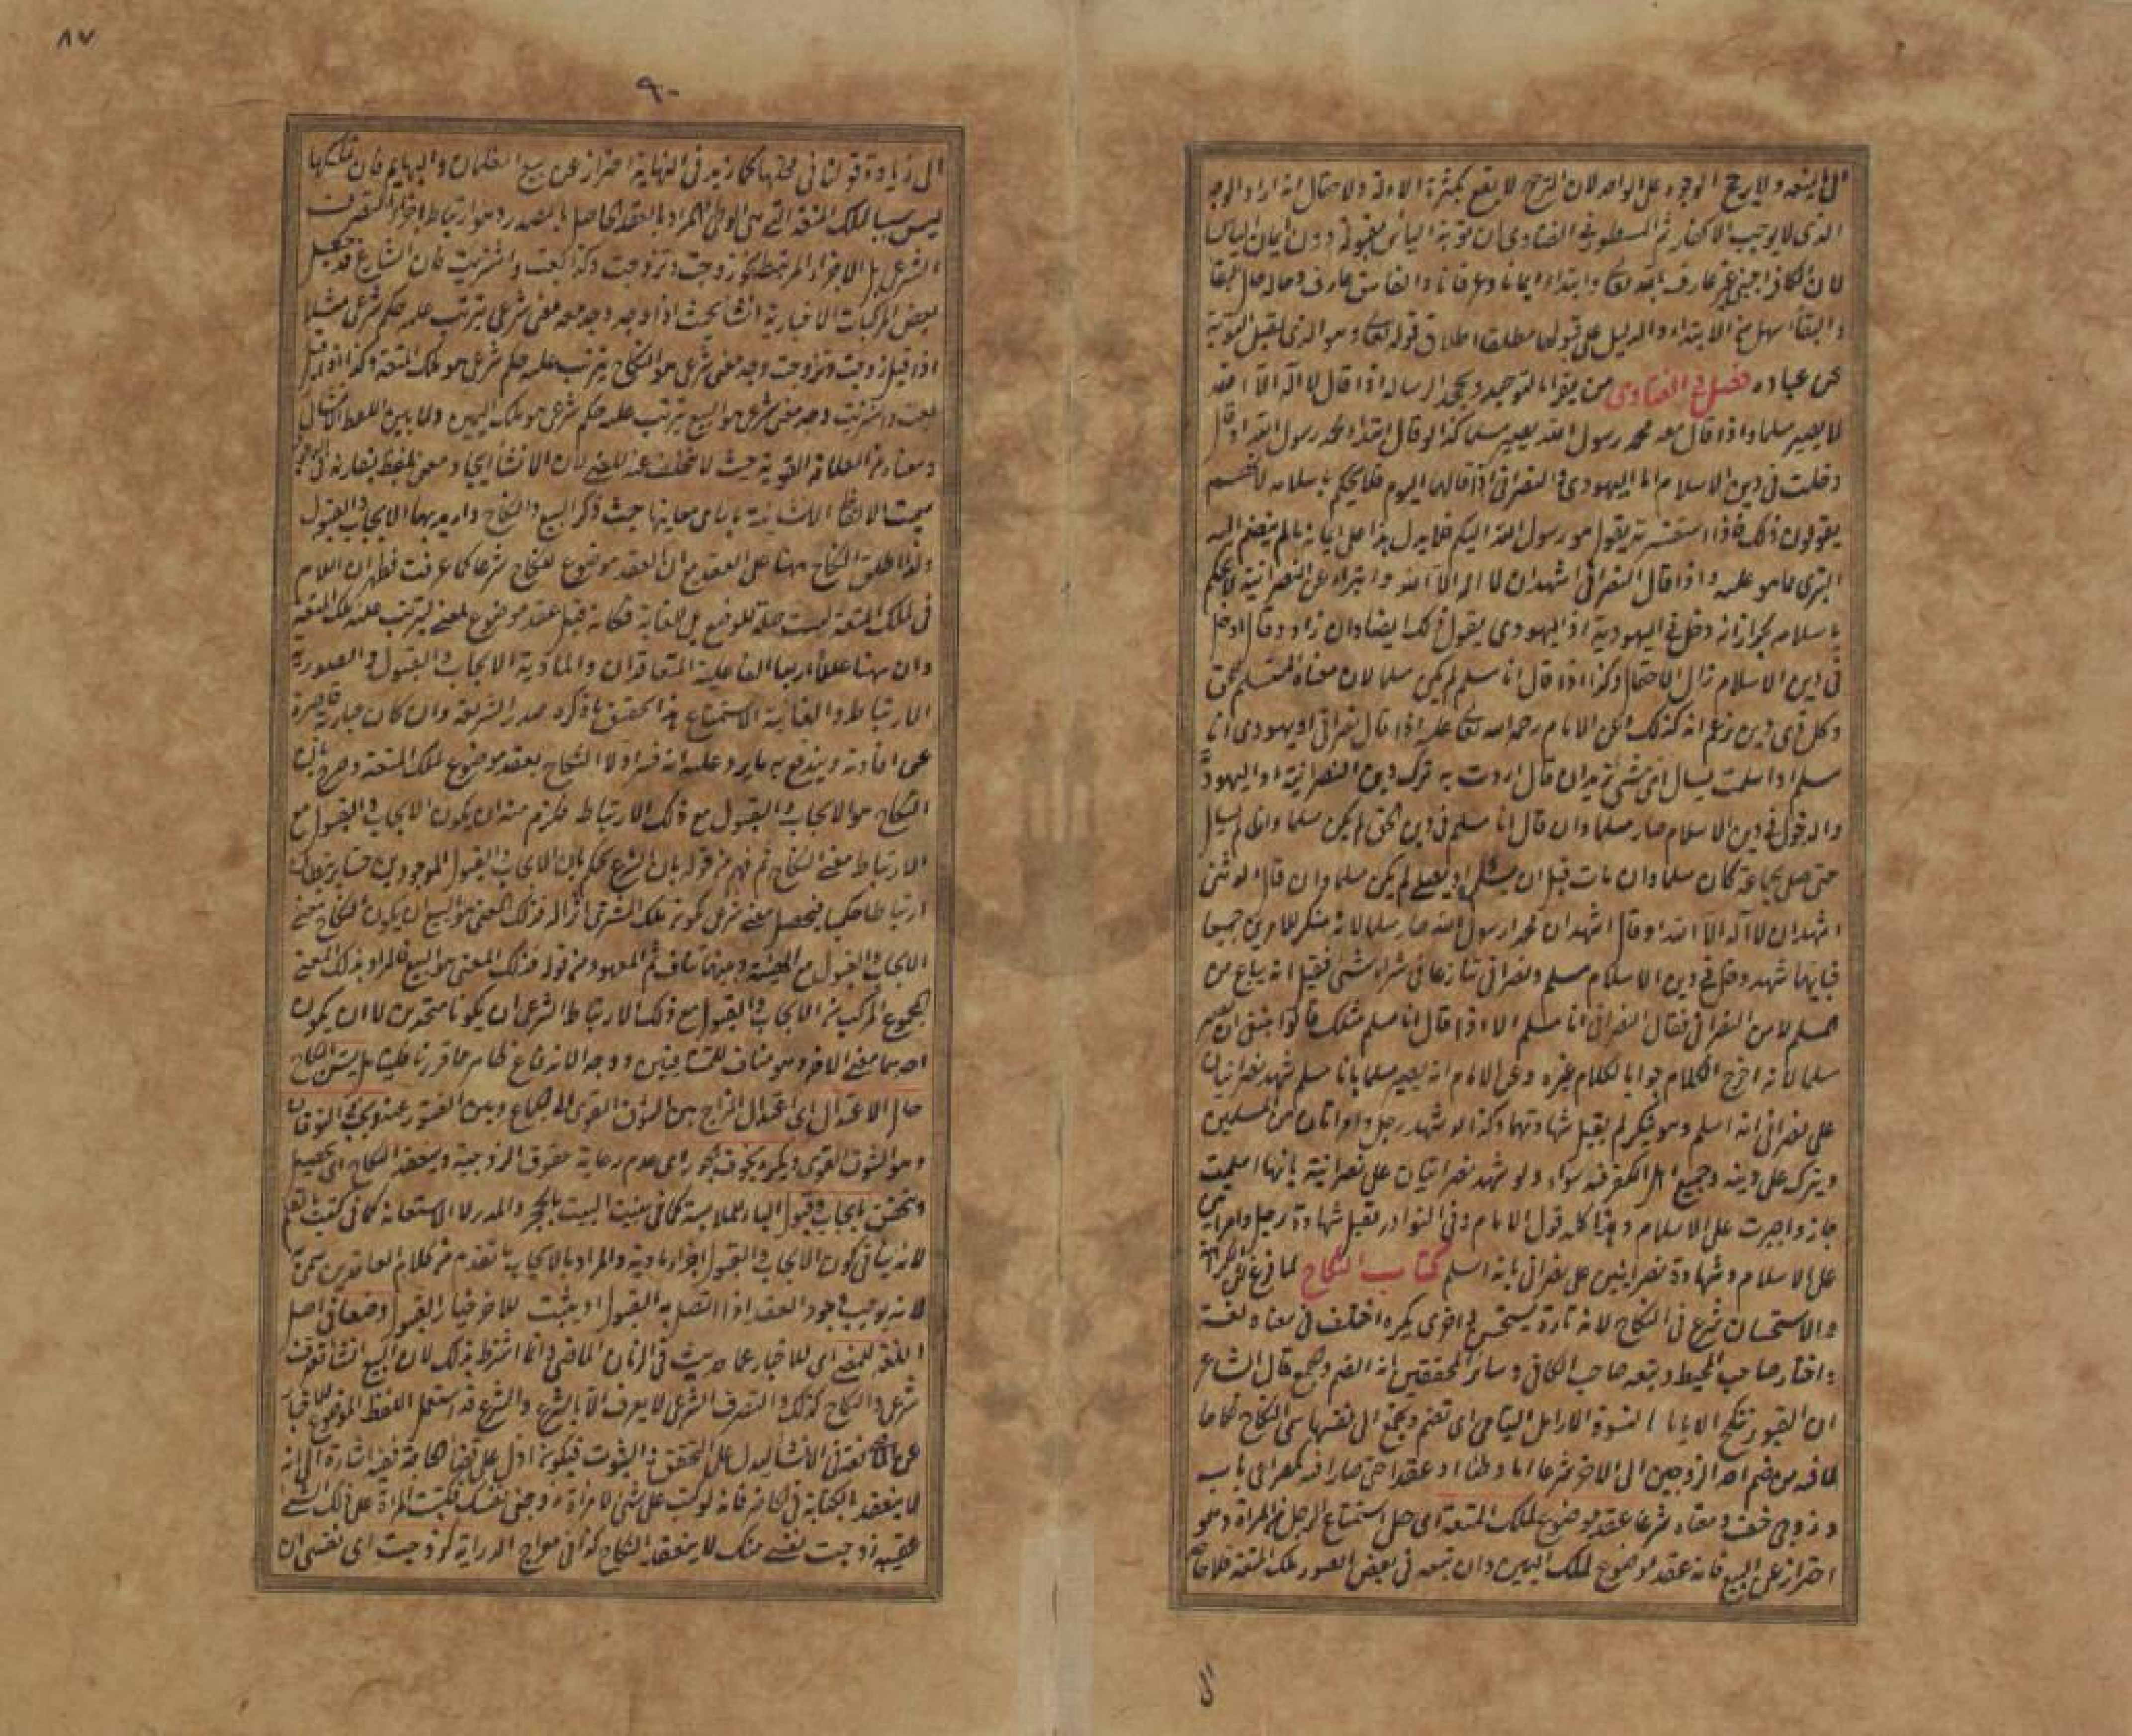 الذى لا يوجب الاكفار ثم المسطور فى الفتاوى ان توبة اليأس مقبولة دون ايمان اليأس
لان الكافر اجنبى غير عارف بالله تعالى وابتدأ ايمانا وعرفانا والفاسق عارف وحاله حال البقا
والبقأ اسهل من الابتداء والدليل على قبولها مطلقا اطلاق قوله تعالى وهو الذى يقبل التوبة
عن عباده فصل فى الفتاوى من يقر بالتوحيد ويجحد الرسالة اذا قال لا اله الا الله
لا يصير مسلما واذا قال معه محمد رسول الله يصير مسلما كذا لو قال محمد رسول الله او قال
دخلت فى دين الاسلام اما اليهودى والنصرانى اذا قالها اليوم فلا يحكم باسلامه لانهم
يقولون ذلك فاذا استفسرته يقول هو رسول الله اليكم فلا يدل هذا على ايمانه ما لم ينضم اليه
التبرى مما هو عليه واذا قال النصرانى اشهد ان لا اله الا الله واتبرأ عن النصرانية لا يحكم
باسلامه لجواز انه دخل فى اليهودية اذ اليهودى يقول ذلك ايضا وان زاد وقال ادخل
فى دين الاسلام زال الاحتمال وكذا اذا قال انا مسلم لم يكن مسلما لان معناه المستسلم للحق
وكل ذى دين يزعم انه كذلك وعن الامام رحمه الله تعالى عليه اذا قال نصرانى او يهودى انا
مسلم او اسلمت يسأل اى شئ تريد ان قال اردت به ترك دين النصرانية او اليهودية
والدخول فى دين الاسلام صار مسلما وان قال انا مسلم فى دين الحق لم يكن مسلما وان لم يسأل
حتى صلى بجماعة كان مسلما وان مات قبل ان يسئل او يصلى لم يكن مسلما وان قال الوثنى
اشهد ان لا اله الا الله او قال اشهد ان محمدا رسول الله صار مسلما لانه منكر للامرين جميعا
فبايهما شهد دخل فى دين الاسلام مسلم ونصرانى تنازعا فى شراء شئ فقيل انه يباع من
المسلم لا من النصرانى فقال النصرانى انا مسلم الا اذا قال انا مسلم مثلك قالوا ينبغى ان يصير
مسلما لانه اخرج الكلام جوابا لكلام غيره وعن الامام انه يصير مسلما بانا مسلم شهد نصرانيان
على نصرانى انه اسلم وهو ينكر لم يقبل شهادتهما وكذا لو شهد رجل وامراتان من المسلمين
ويترك على دينه وجميع اهل الكفر فيه سواء ولو شهد نصرانيان على نصرانية بانها اسلمت
جاز واجبرت على الاسلام وهذا كله قول الامام وفى النوادر تقبل شهادة رجل وامراتين
على الاسلام وشهادة نصرانيين على نصرانى بانه اسلم كتاب النكاح لما فرغ عن الكراهية
والاستحسان شرع فى النكاح لانه تارة يستحسن واخرى يكره اختلف فى معناه لغة
واختار صاحب المحيط وتبعه صاحب الكافى وسائر المحققين انه الضم والجمع قال الشاعر
ان القبور تنكح الايامى النسوة الارامل اليتامى اى تضم وتجمع الى نفسها سمى النكاح نكاحا
لما فيه من ضم احد الزوجين الى الاخر شرعا اما وطئا او عقدا حتى صارا فيه كمصراعى باب
وزوجى خف ومعناه شرعا عقد موضوع لملك المتعة اى حل استمتاع الرجل من المرأة وهو
احتراز عن البيع فانه عقد موضوع لملك اليمين وان تبعه فى بعض الصور ملك المتعة فلا حاجة
الى
٨٧
٩٠
الى زيادة قولنا فى محلها كما زيد فى النهاية احترازا عن بيع الغلمان والبهايم فان تملكها
ليس سببا لملك المتعة التى هى الوطئ والمراد بالعقد الحاصل بالمصدر وهو ارتباط اجزاء التصرف
الشرعى بل الاجزاء المرتبطة كزوجت وتزوجت وكذا بعت واشتريت فان الشارع قد جعل
بعض المركبات الاخبارية انشأ بحيث اذا وجد وجد معه معنى شرعى يترتب عليه حكم شرعى مثلا
اذا قيل زوجت وتزوجت وجد معنى شرعى هو النكاح يترتب عليه حكم شرعى هو ملك المتعة وكذا اذا قيل
بعت واشتريت وجد معنى شرعى هو البيع يترتب عليه حكم شرعى هو ملك اليمين ولما بين اللفظ الانشائى
ومعناه من العلاقة القوية بحيث لا يتخلف عنه المعنى لان الانشأ ايجاد معنى بلفظ يقارنه فى الوجود
سميت الالفاظ الانشائية باسامى معانيها حيث ذكر البيع والنكاح واريد بهما الايجاب والقبول
ولذا اطلق النكاح ههنا على العقد مع ان العقد موضوع للنكاح شرعا كما عرفت فظهر ان اللام
فى لملك المتعة ليست صلة للوضع بل للغاية فكانه قيل عقد موضوع لمعنى ليترتب عليه ملك المتعة
وان ههنا عللا اربعا الفاعلية المتعاقدان والمادية الايجاب والقبول والصورية
الارتباط والغائية الاستمتاع هذا تحقيق ما ذكره صدر الشريعة وان كان عبارته قاصرة
عن افادته ويندفع به ما يرد عليه انه فسر اولا النكاح بعقد موضوع لملك المتعة وصرح بان
النكاح هو الايجاب والقبول مع ذلك الارتباط فلزم منه ان يكون الايجاب والقبول مع
الارتباط معنى النكاح ثم فهم من قوله بان الشرع يحكم بان الايجاب والقبول الموجودين حسا يرتبطان
ارتباطا حكميا فيحصل معنى شرعى يكون ملك المشترى اثرا له فذلك المعنى هو البيع ان يكون النكاح معنى
الايجاب والقبول مع الهيئة وبينهما تناف ثم المعهود من قوله فذلك المعنى هو البيع فالمراد بذلك المعنى
المجموع المركب من الايجاب والقبول مع ذلك الارتباط الشرعى ان يكونا متحدين لا ان يكون
احدهما معنى الاخر وهو مناف للسابقين ووجه الاندفاع ظاهر مما قررنا فليتأمل يسن النكاح
حال الاعتدال اى اعتدال المزاج بين الشوق القوى الى الجماع وبين الفتور عنه ويجب فى التوقان
وهو الشوق القوى ويكره لخوف الجور اى عدم رعاية حقوق الزوجية وينعقد النكاح اى يحصل
ويتحقق بايجاب وقبول الباء للملابسة كما فى بنيت البيت بالحجر والمدر لا الاستعانة كما فى كتبت بالقلم
لانه ينافى كون الايجاب والقبول اجزاء مادية والمراد بالايجاب ما تقدم من كلام العاقدين سمى به
لانه يوجب وجود العقد اذا اتصل به القبول او يثبت للاخر خيار القبول وضعا فى اصل
اللغة للمضى اى للاخبار عما حدث فى الزمان الماضى وانما اشترط ذلك لان البيع انشأ تصرف
شرعى والنكاح كذلك والتصرف الشرعى لا يعرف الا بالشرع والشرع قد استعمل اللفظ الموضوع للاخبار
لا ينعقد بالكتابة فى الحاضر فانه لو كتب على شئ لامرأة زوجينى نفسك فكتبت المرأة على ذلك الشئ
عقيبه زوجت نفسى منك لا ينعقد النكاح كذا فى معراج الدراية كزوجت اى نفسى ان